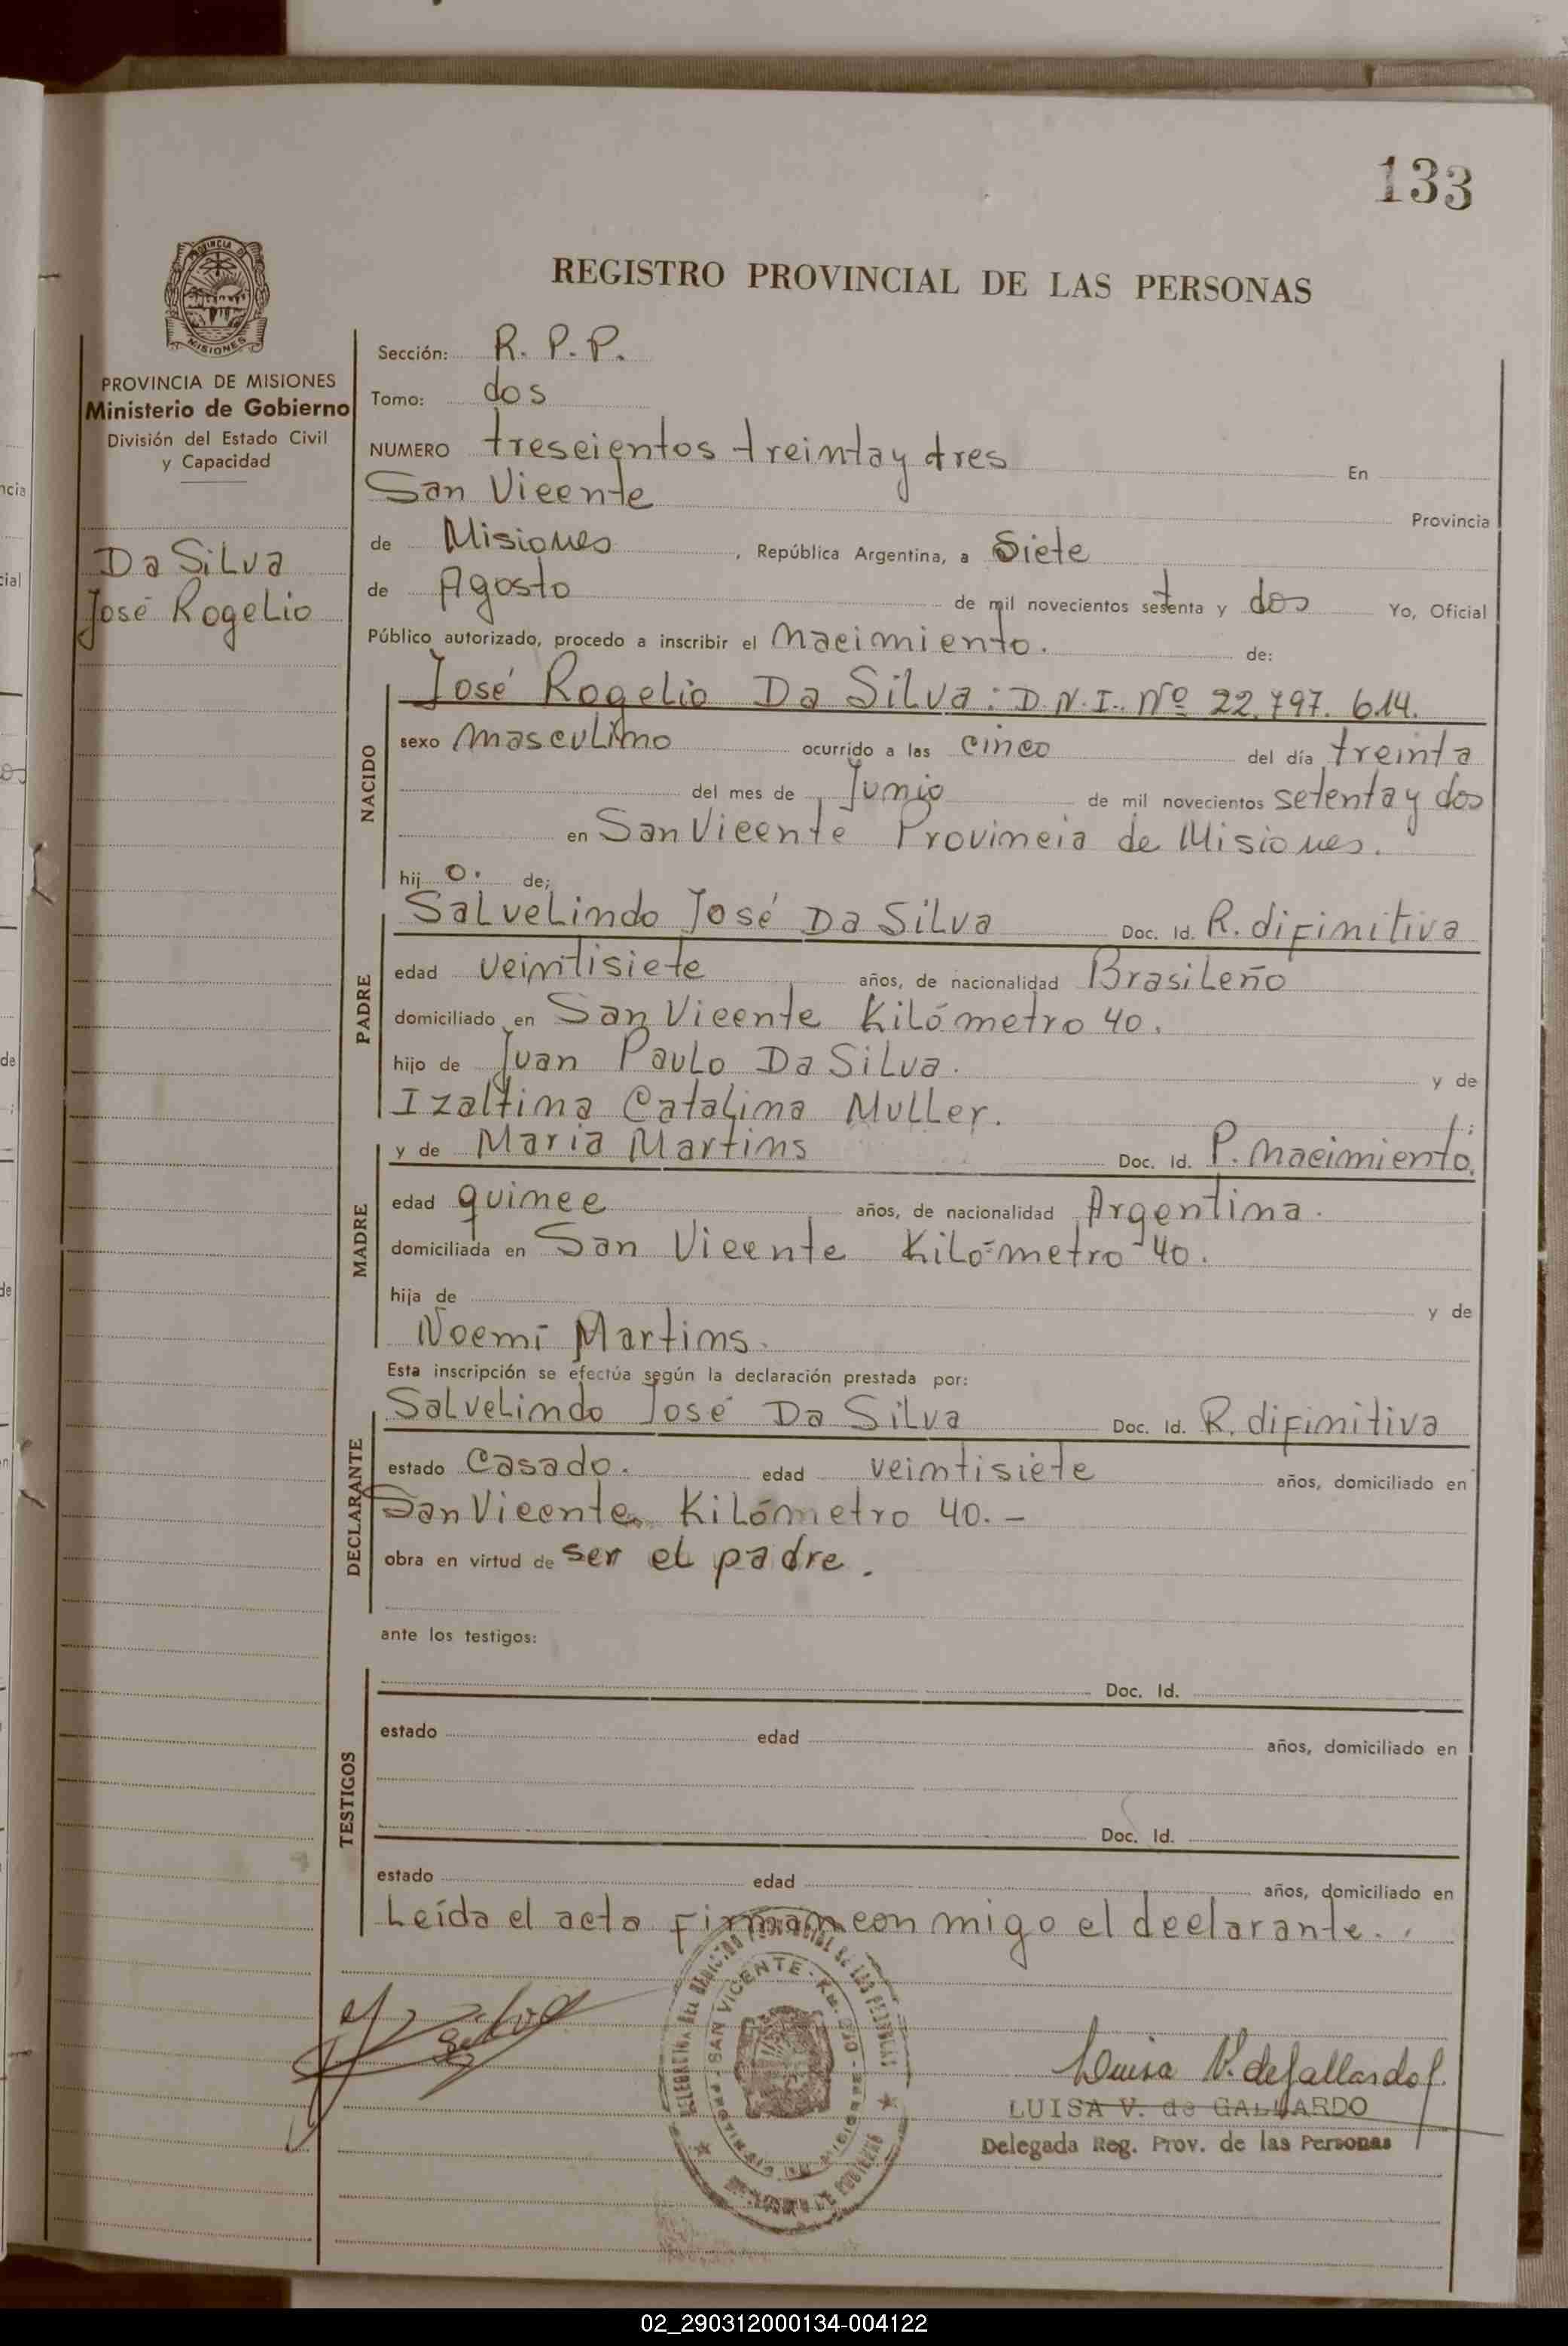 133
PROVINCIA DE
MISIONES
PROVINCIA DE MISIONES
Ministerio de Gobierno
División del Estado Civil
y Capacidad
Da Silva
José Rogelio
REGISTRO PROVINCIAL DE LAS PERSONAS
Sección: R. P. P.
Tomo: dos
NUMERO trescientos treinta y tres En
San Vicente Provincia
de Misiones, República Argentina, a Siete
de Agosto de mil novecientos setenta y dos Yo, Oficial
Público autorizado, procedo a inscribir el nacimiento. de:
NACIDO
José Rogelio Da Silva: D.N.I. Nº 22.797.614.
sexo masculino ocurrido a las cinco del día treinta
del mes de Junio de mil novecientos setenta y dos
en San Vicente Provincia de Misiones.
hij o. de;
PADRE
Salvelindo José Da Silva Doc. Id. R. difinitiva
edad veintisiete años, de nacionalidad Brasileño
domiciliado en San Vicente Kilómetro 40.
hijo de Juan Paulo Da Silva. y de
Izaltina Catalina Muller.
MADRE
y de Maria Martins Doc. Id. P. nacimiento.
edad quince años, de nacionalidad Argentina.
domiciliada en San Vicente Kiló-metro 40.
hija de y de
Noemí Martins.
Esta inscripción se efectúa según la declaración prestada por:
DECLARANTE
Salvelindo José Da Silva Doc. Id. R. difinitiva
estado Casado. edad veintisiete años, domiciliado en
San Vicente Kilómetro 40. -
obra en virtud de ser el padre.
ante los testigos:
TESTIGOS
Doc. Id.
estado edad años, domiciliado en
Doc. Id.
estado edad años, domiciliado en
Leída el acta firman con migo el declarante.
DELEGACIÓN DEL REGISTRO PROVINCIAL DE LAS PERSONAS
SAN VICENTE
Silva
Luisa V. de Gallardo
LUISA V. de GALLARDO
Delegada Reg. Prov. de las Personas
02_290312000134-004122